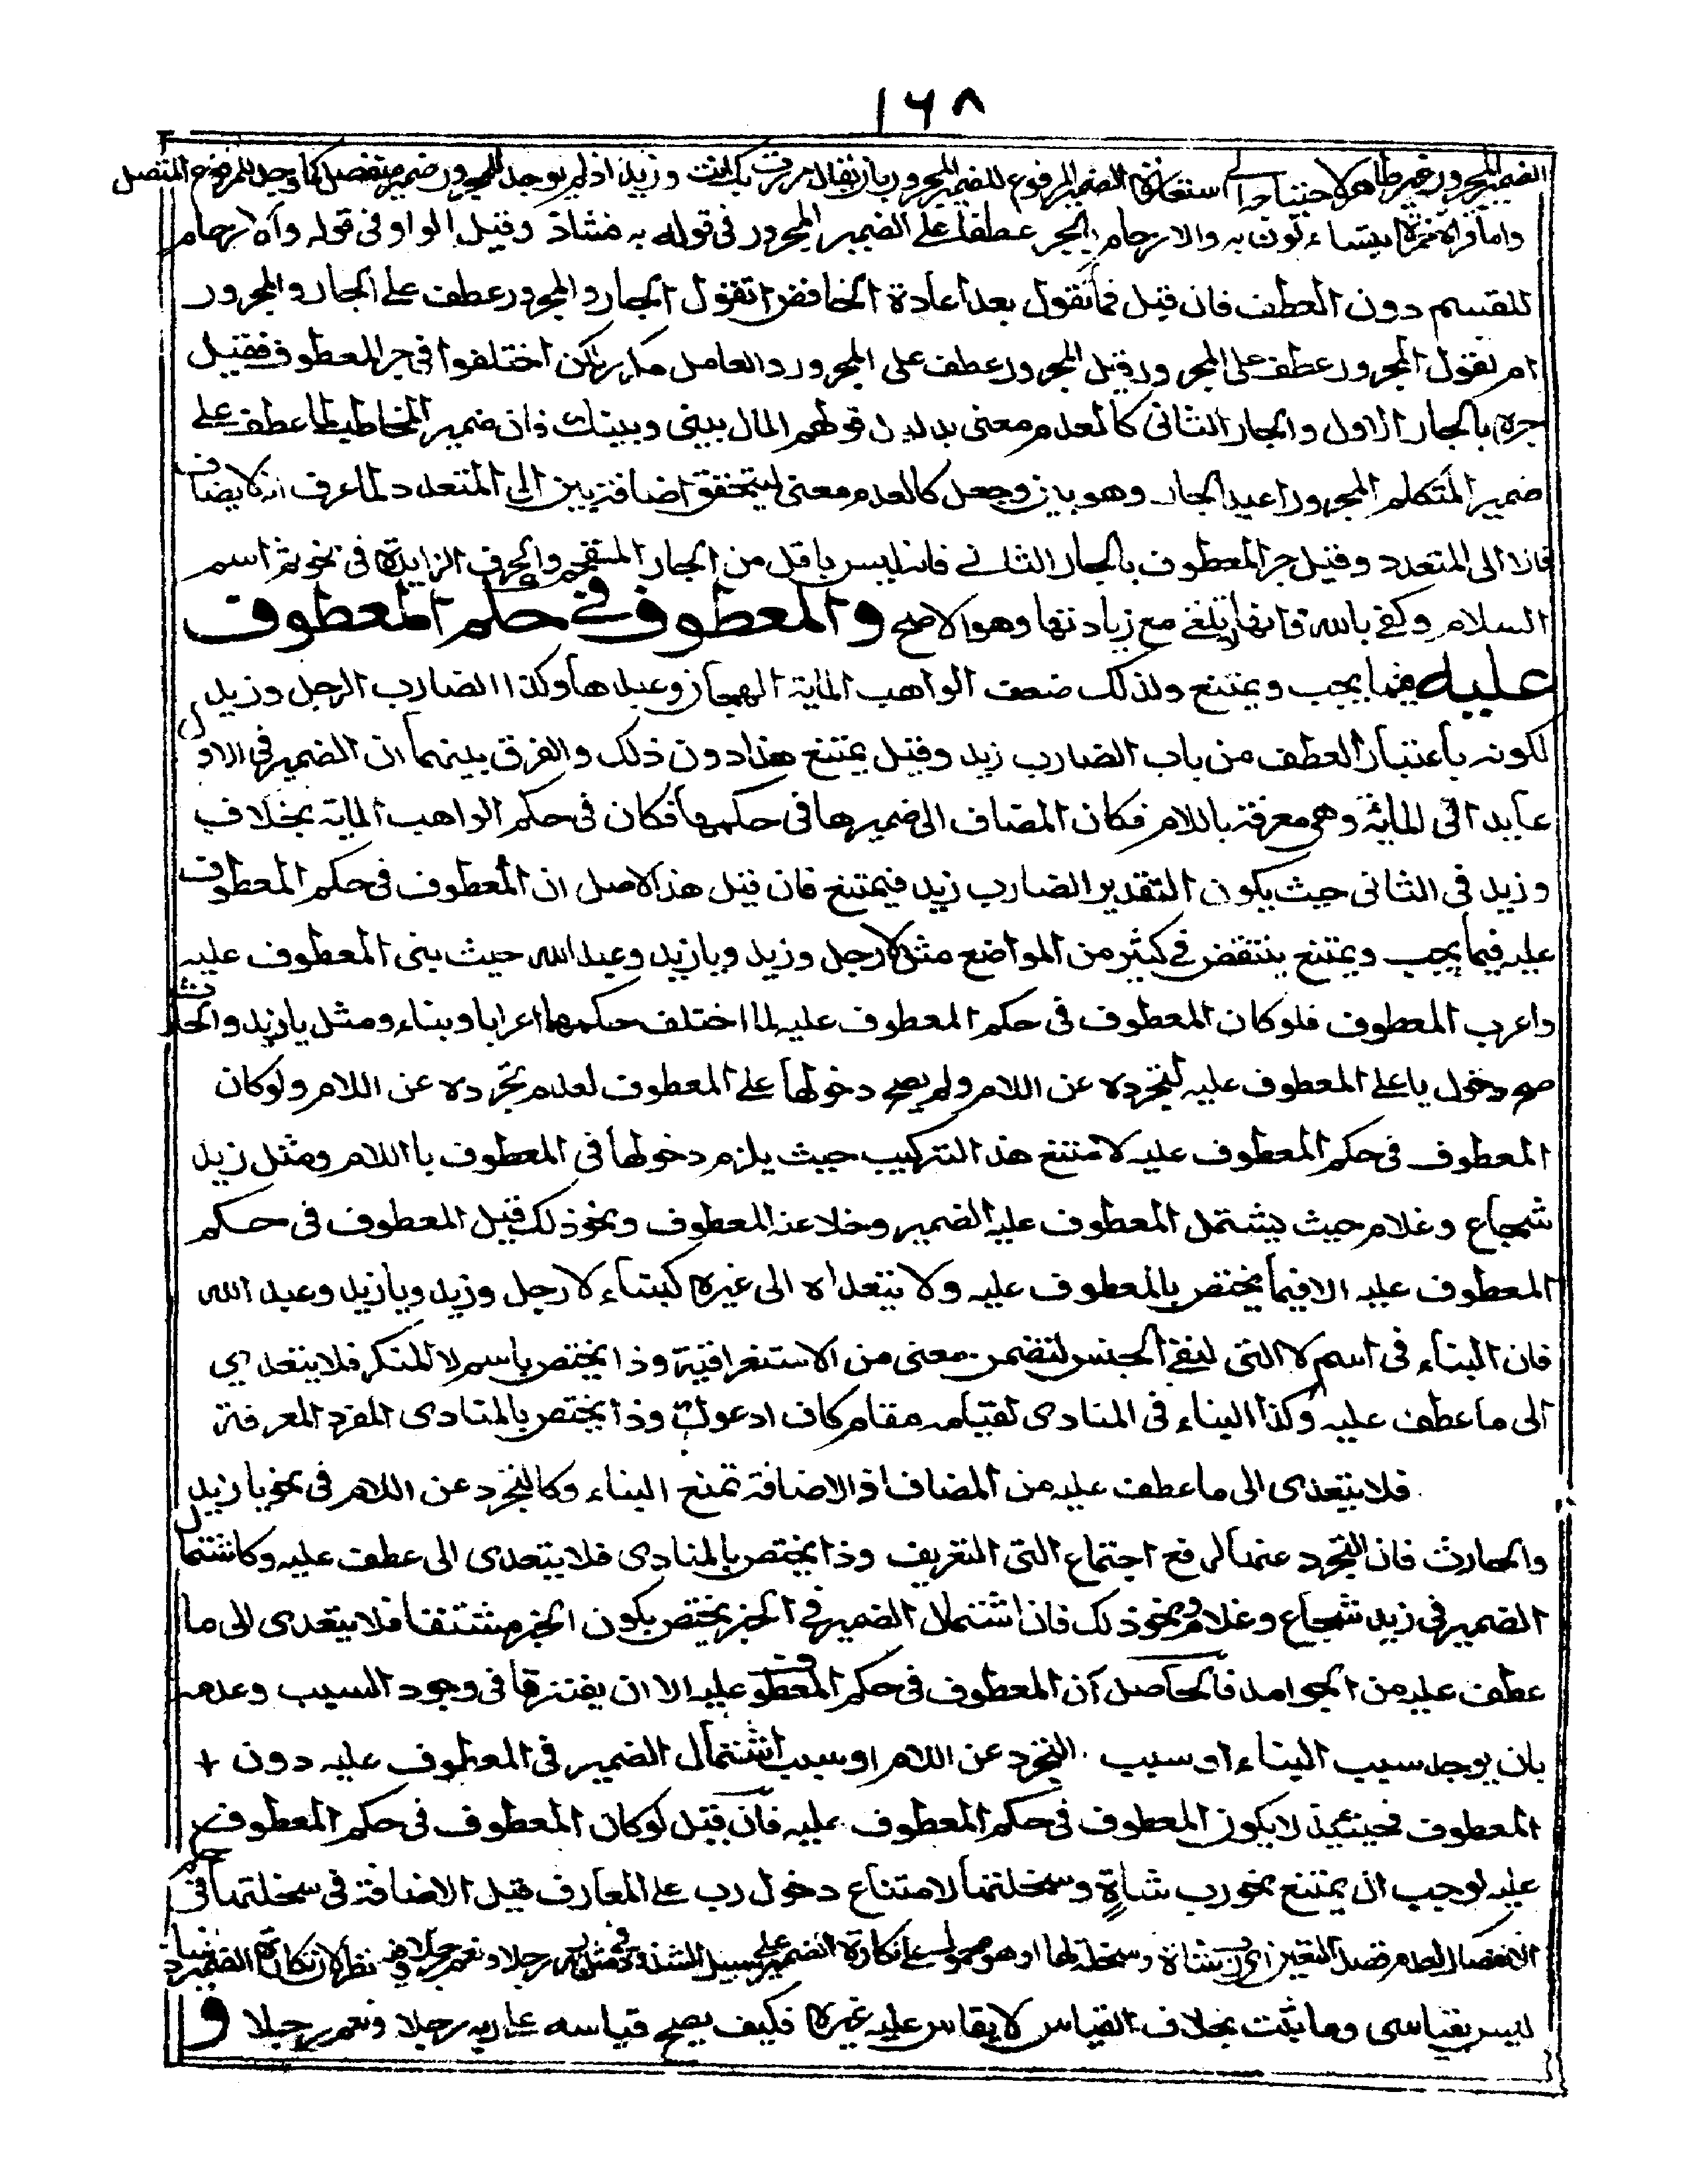 ١٦٨
الضمير المجرور غير ظاهر لاحتياجه الى استعارة الضمير المرفوع للضمير المجرور بان يقال مررت بك انت وزيد اذ لم يوجد للمجرور ضمير منفصل كما وجد للمرفوع المتصل
واما قراءة حمزة تساءلون به والارحام بالجر عطفا على الضمير المجرور فى قوله به فشاذ وقيل الواو فى قوله والارحام
للقسم دون العطف فان قيل فما تقول بعد اعادة الخافض اتقول الجار والمجرور عطف على الجار والمجرور
ام تقول المجرور عطف على المجرور قيل المجرور عطف على المجرور والعامل مكرر لكن اختلفوا فى جر المعطوف فقيل
جره بالجار الاول والجار الثانى كالعدم معنى بدليل قولهم المال بينى وبينك فان ضمير المخاطب لما عطف على
ضمير المتكلم المجرور اعيد الجار وهو بين وجعل كالعدم معنى ليتحقق اضافة بين الى المتعدد لما عرف انه لا يضاف
فانه الا الى المتعدد وقيل جر المعطوف بالجار الثانى فانه ليس باقل من الجار المقحم والحرف الزايدة فى نحو ثم اسم
السلام وكفى بالله فانها لا تلغى مع زيادتها وهو الاصح والمعطوف فى حكم المعطوف
عليه فيما يجب ويمتنع ولذلك ضعف الواهب الماية الهجان وعبدها وكذا الضارب الرجل وزيد
لكونه باعتبار العطف من باب الضارب زيد وقيل يمتنع هذا دون ذلك والفرق بينهما ان الضمير فى الاول
عايد الى الماية وهى معرفة باللام فكان المضاف الى ضميرها فى حكمها فكان فى حكم الواهب الماية بخلاف
وزيد فى الثانى حيث يكون التقدير الضارب زيد فيمتنع فان قيل هذا الاصل ان المعطوف فى حكم المعطوف
عليه فيما يجب ويمتنع ينتقض فى كثير من المواضع مثل لا رجل وزيد ويا زيد وعبد الله حيث بنى المعطوف عليه
واعرب المعطوف فلو كان المعطوف فى حكم المعطوف عليه لما اختلف حكمهما اعرابا وبناء ومثل يا زيد والحارث
صح دخول يا على المعطوف عليه لتجرده عن اللام ولم يصح دخولها على المعطوف لعدم تجرده عن اللام ولو كان
المعطوف فى حكم المعطوف عليه لامتنع هذا التركيب حيث يلزم دخولها فى المعطوف باللام ومثل زيد
شجاع وغلام حيث يشتمل المعطوف عليه الضمير وخلا عنه المعطوف ونحو ذلك قيل المعطوف فى حكم
المعطوف عليه الا فيما يختص بالمعطوف عليه ولا يتعداه الى غيره كبناء لا رجل وزيد ويا زيد وعبد الله
فان البناء فى اسم لا التى لنفى الجنس لتضمن معنى من الاستغراقية وذا يختص باسم لا المنكر فلا يتعدى
الى ما عطف عليه وكذا البناء فى المنادى لقيامه مقام كاف ادعوك وذا يختص بالمنادى المفرد المعرفة
فلا يتعدى الى ما عطف عليه من المضاف اذ الاضافة تمنع البناء وكالتجرد عن اللام فى نحو يا زيد
والحارث فان التجرد عنها لرفع اجتماع التى التعريف وذا يختص بالمنادى فلا يتعدى الى عطف عليه وكاشتمال
الضمير فى زيد شجاع وغلام ونحو ذلك فان اشتمال الضمير فى الخبر يختص بكون الخبر مشتقا فلا يتعدى الى ما
عطف عليه من الجوامد فالحاصل ان المعطوف فى حكم المعطوف عليه الا ان يفترقا فى وجود السبب وعدمه
بان يوجد سبب البناء او سبب التجرد عن اللام او سبب اشتمال الضمير فى المعطوف عليه دون +
المعطوف فحينئذ لا يكون المعطوف فى حكم المعطوف عليه فان قيل لو كان المعطوف فى حكم المعطوف
عليه لوجب ان يمتنع نحو رب شاة وسخلتها لامتناع دخول رب على المعارف قيل الاضافة فى سخلتها فى حكم
الانفصال لعدم قصد التعيين اى رب شاة وسخلة لها او هو محمول على نكارة الضمير على سبيل الشذوذ فى مثل ربه رجلا ونعم رجلا وفيه نظر لان نكارة الضمير
ليس بقياسى وما ثبت بخلاف القياس لا يقاس عليه غيره فكيف يصح قياسه على ربه رجلا ونعم رجلا و